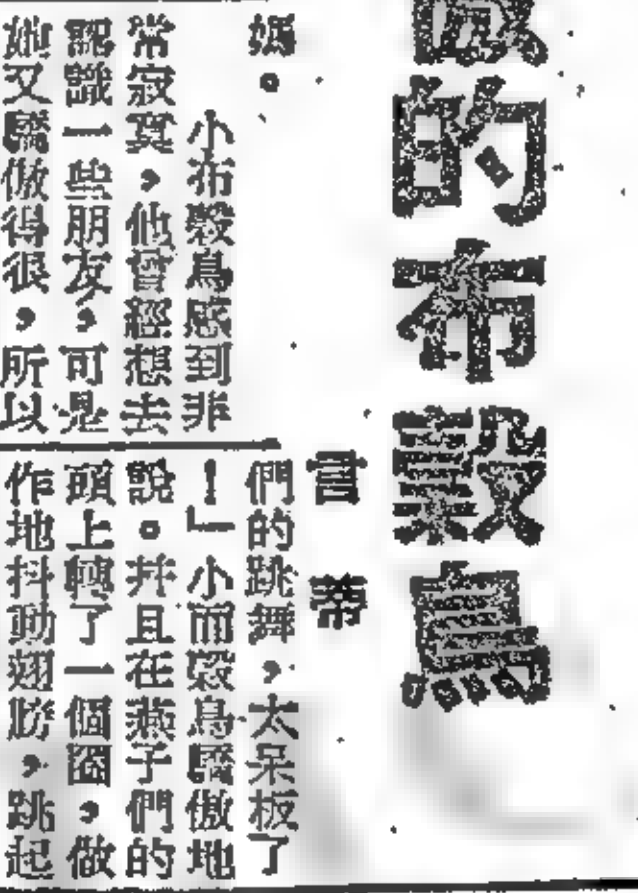 傲的布穀鳥
言蒂
媽。
小布穀鳥感到非
常寂寞，他曾經想去
認識一些朋友，可是
她又驕傲得很，所以
們的跳舞，太呆板了
！」小而穀鳥驕傲地
說。幷且在燕子們的
頭上轉了一個圈，做
作地抖動翅膀，跳起